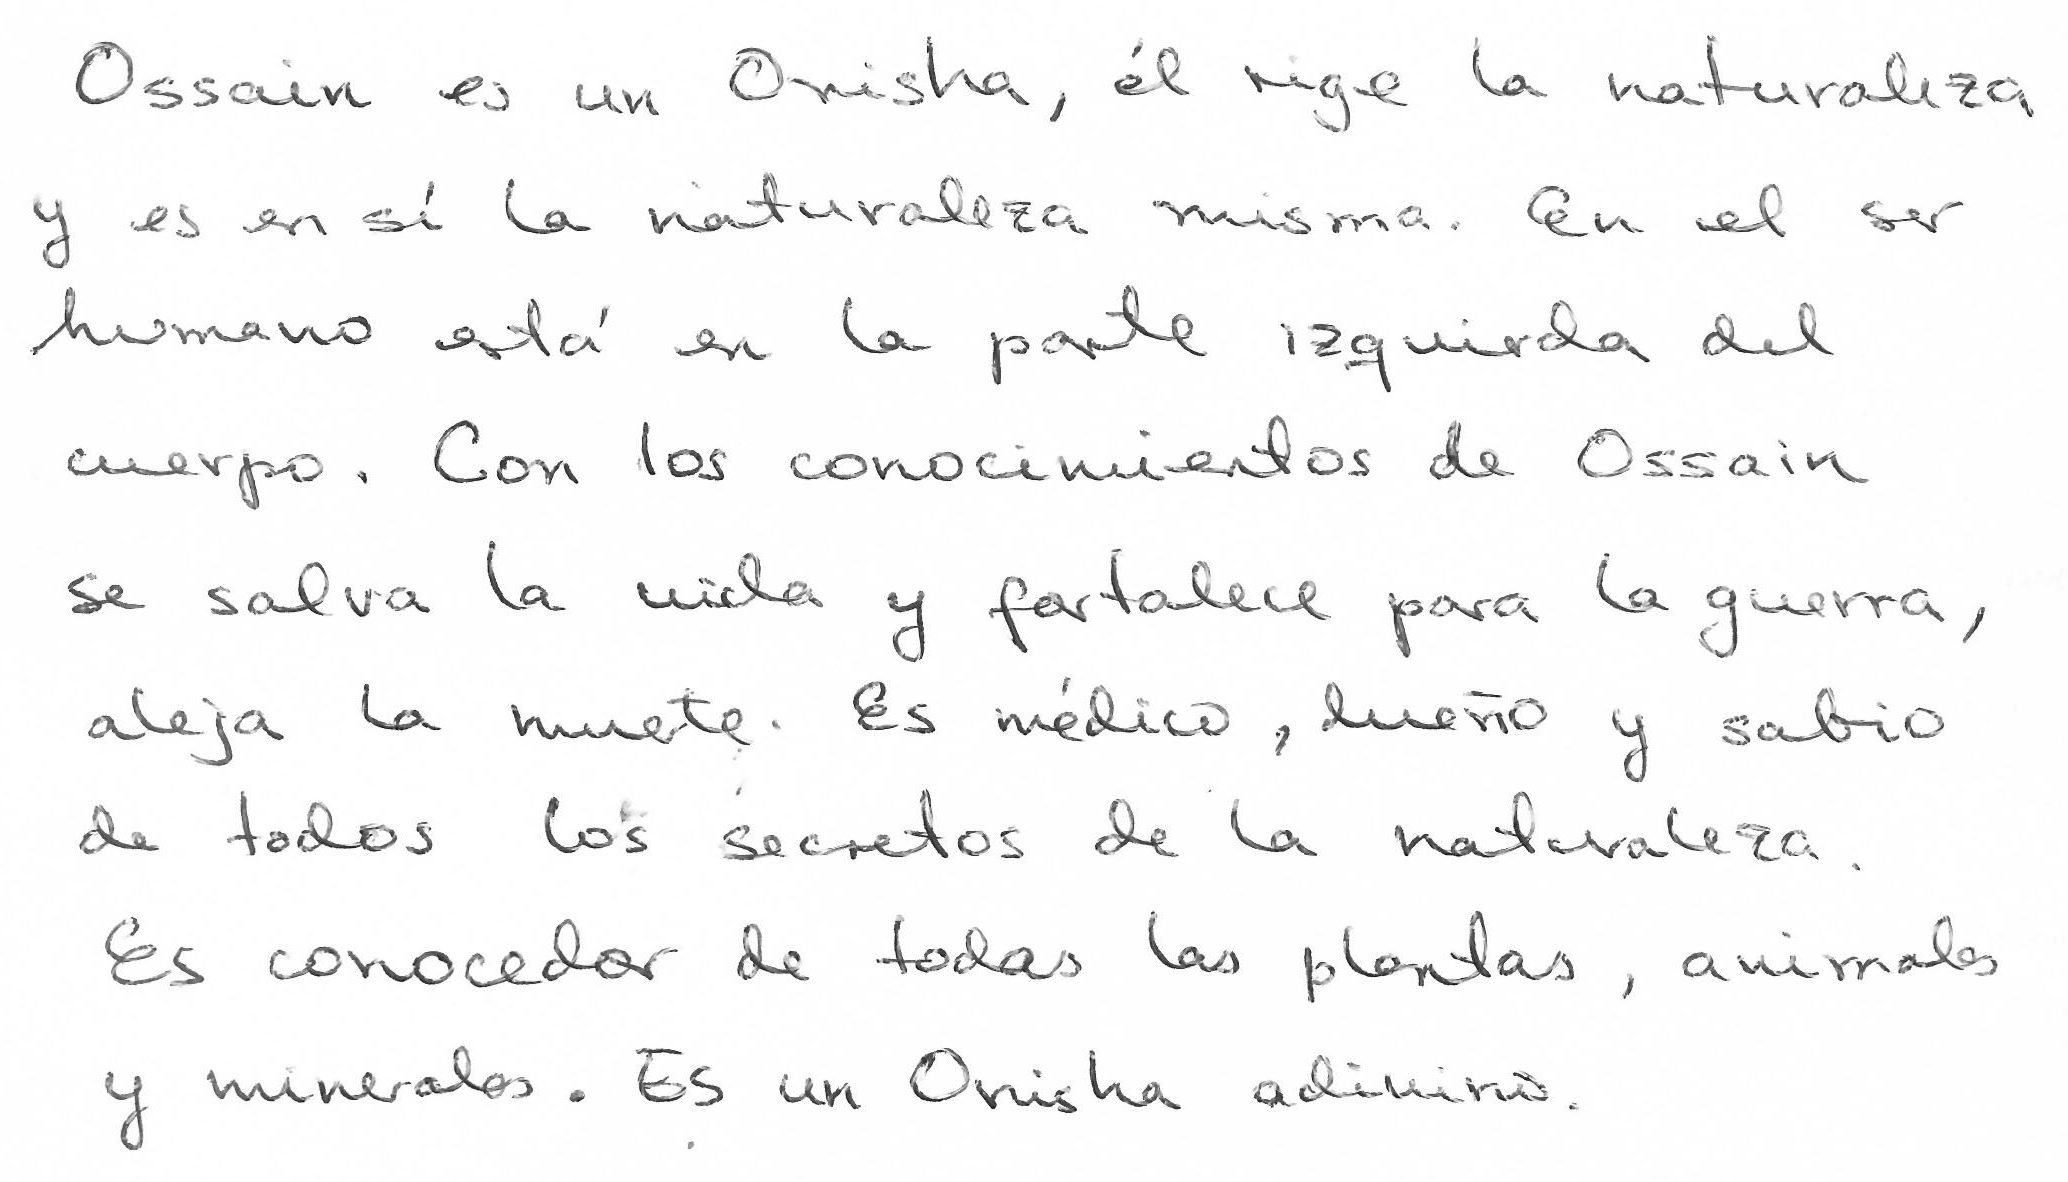 Ossain es un Orisha, él rige la naturaleza
y es en sí la naturaleza misma. En el ser
humano está en la parte izquierda del
cuerpo. Con los conocimientos de Ossain
se salva la vida y fortalece para la guerra,
aleja la muerte. Es médico, dueño y sabio
de todos los secretos de la naturaleza.
Es conocedor de todas las plantas, animales
y minerales. Es un Orisha adivino.